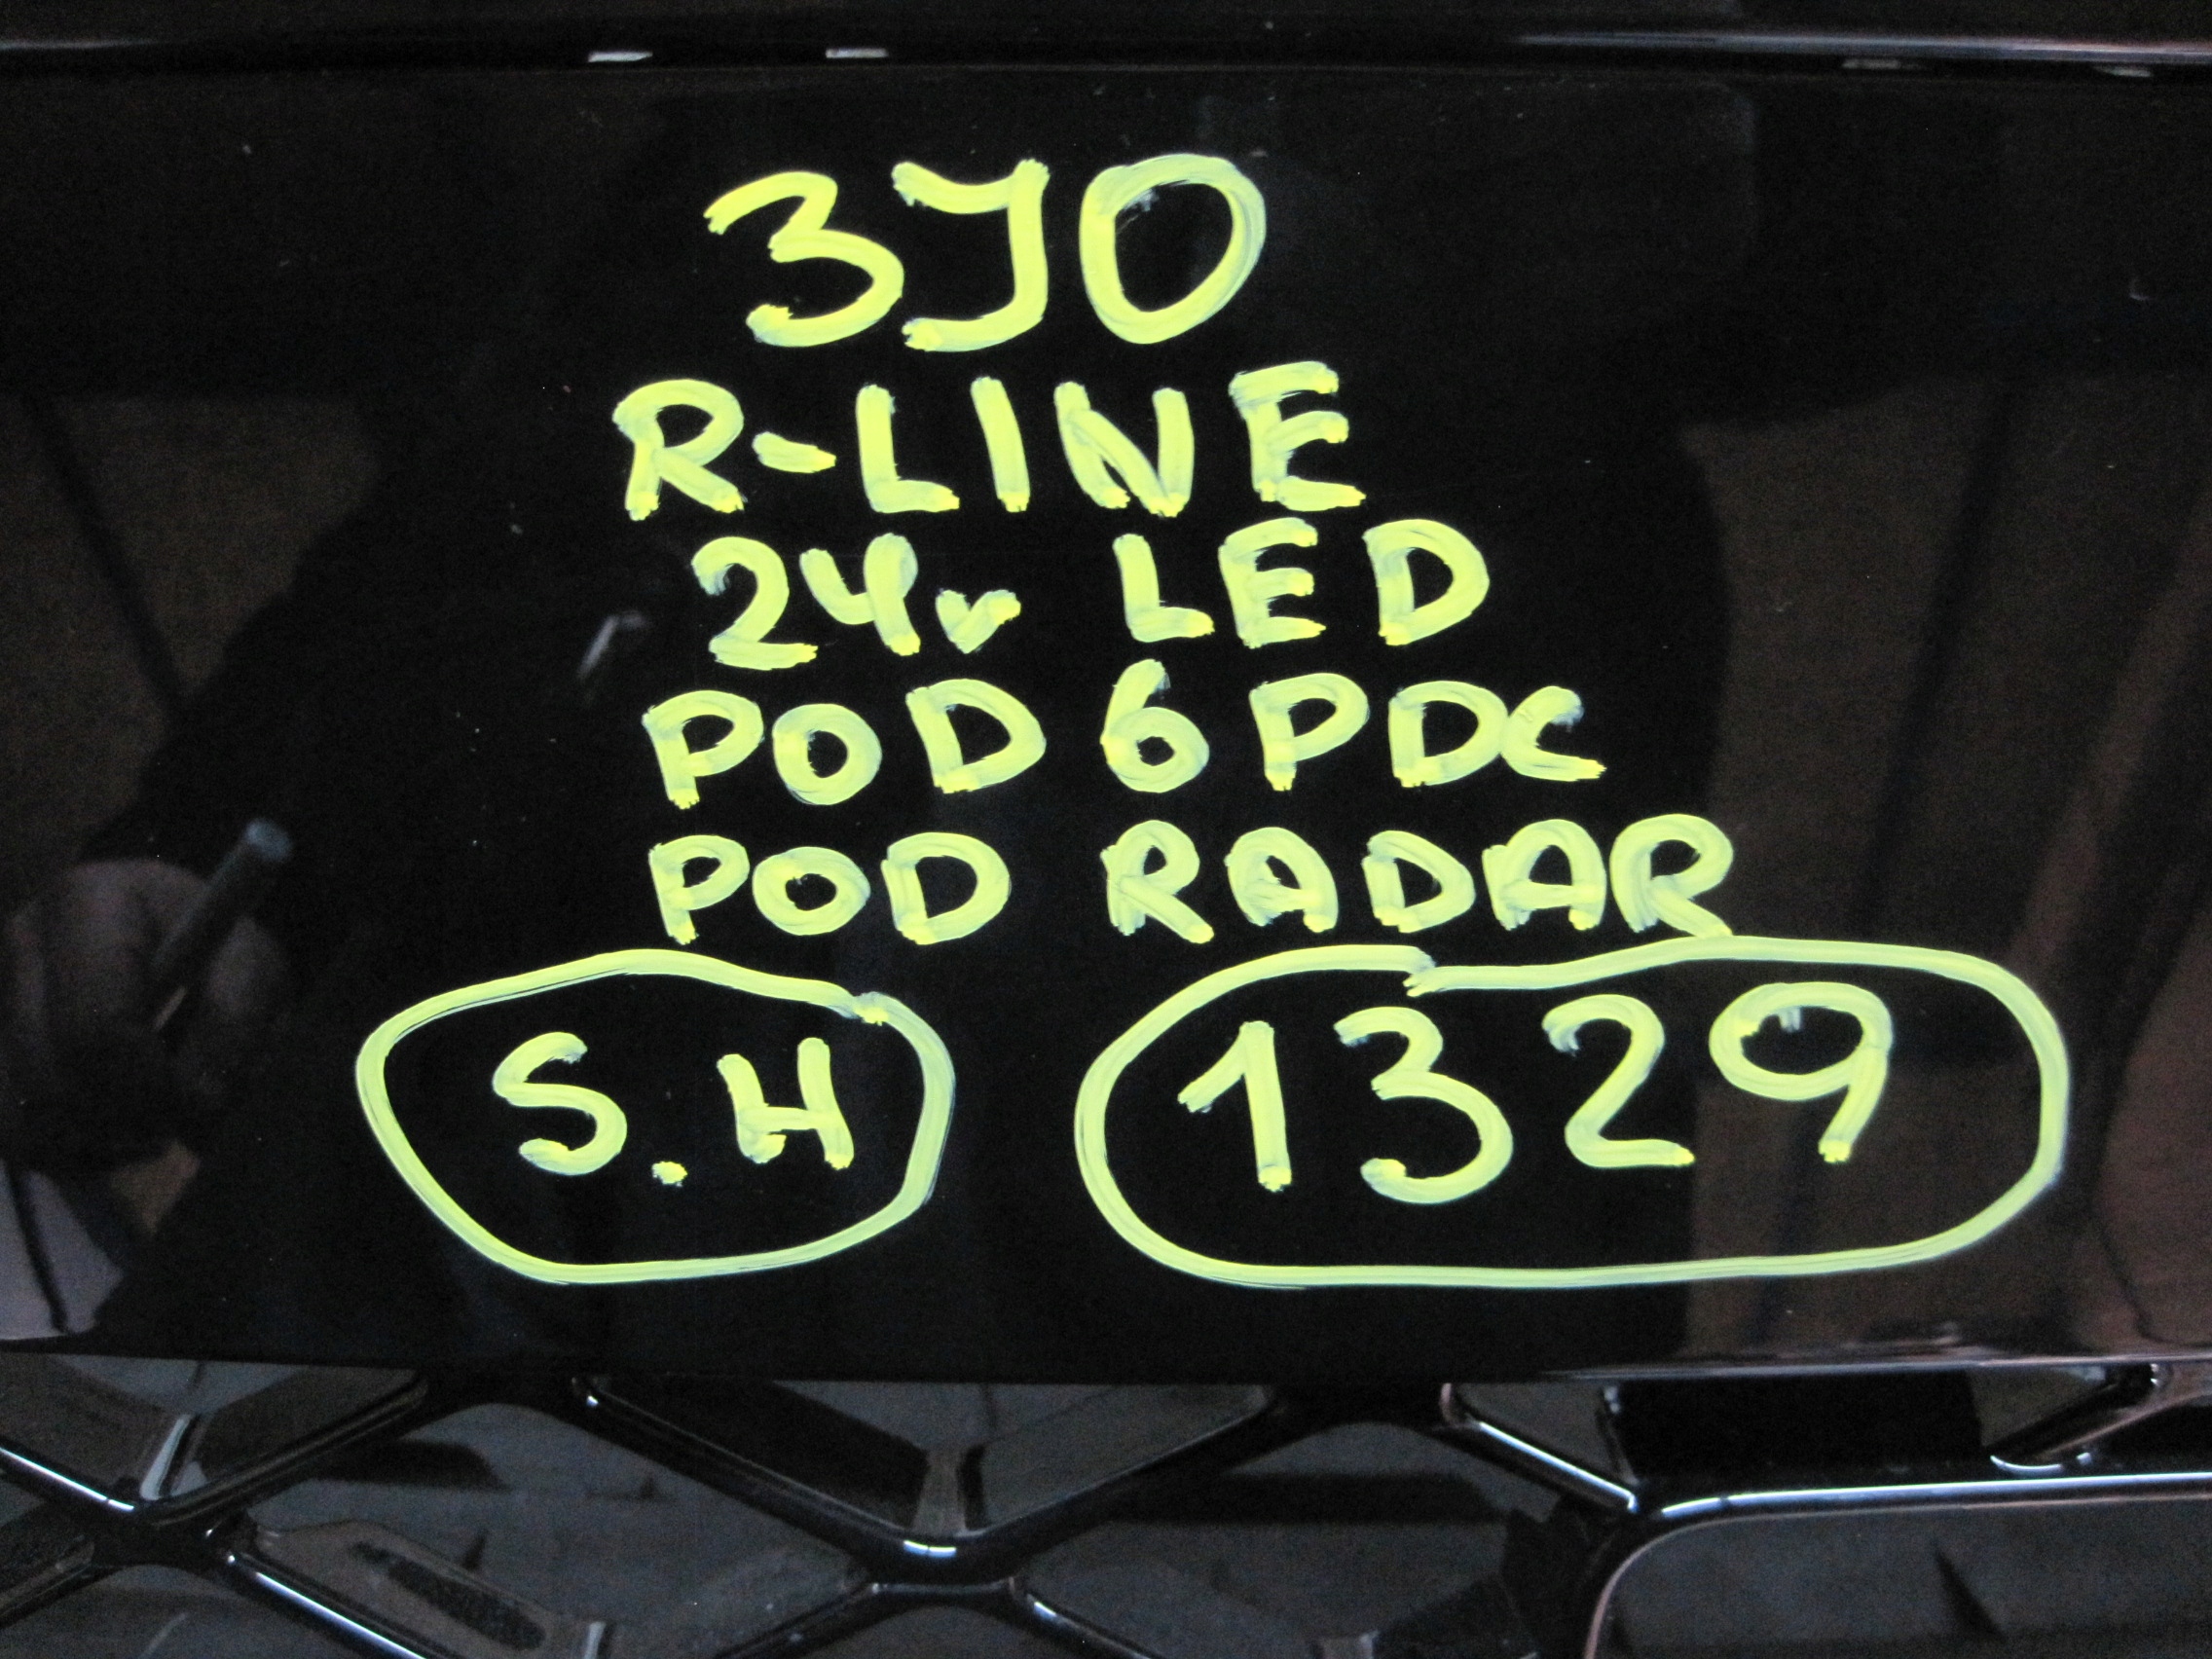 3J0
R-LINE
24r LED
POD 6PDC
POD RADAR
S.H 1329